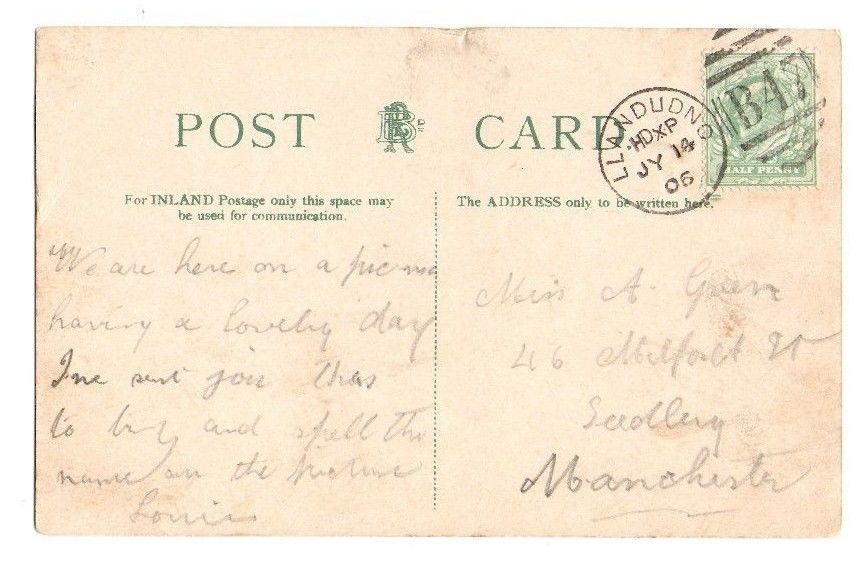 POST CARD
For INLAND Postage only this space may
be used for communication.
The ADDRESS only to be written here.
LLANDUDNO
HDXP
JY 14
06
B47
HALF PENNY
We are here on a picnic
having a lovely day
I've sent you this
to try and spell the
name on the picture
Louie
Miss A. Green
46 Milford St
Seedley
Manchester